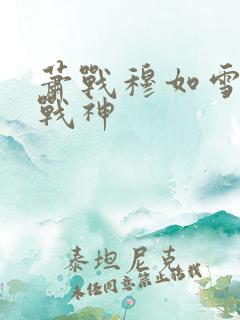 蕭戰穆如雪
戰神
泰坦尼克
未经同意禁止转载